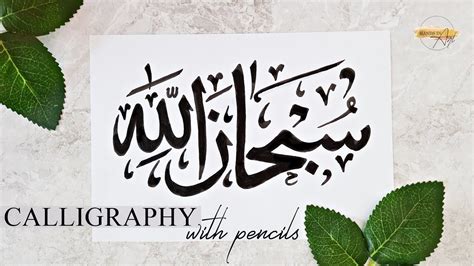 سُبْحَانَ اللّٰه
CALLIGRAPHY
with pencils